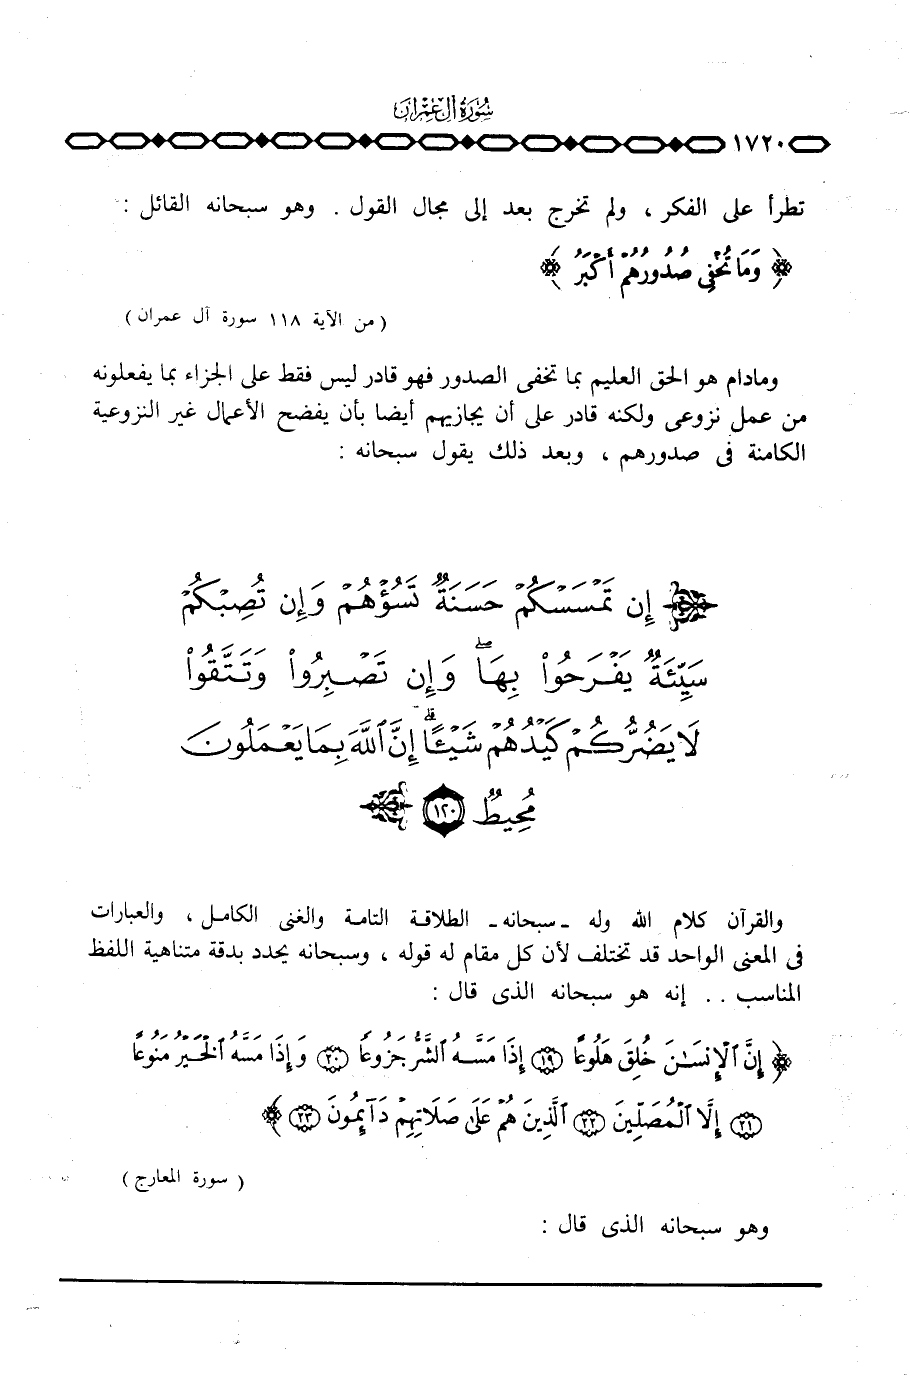 سُورَةُ آلِ عِمْرَانَ
١٧٢٠
تطرأ على الفكر ، ولم تخرج بعد إلى مجال القول . وهو سبحانه القائل :
﴿ وَمَا تُخْفِي صُدُورُهُمْ أَكْبَرُ ﴾
( من الآية ١١٨ سورة آل عمران )
ومادام هو الحق العليم بما تخفى الصدور فهو قادر ليس فقط على الجزاء بما يفعلونه
من عمل نزوعى ولكنه قادر على أن يجازيهم أيضا بأن يفضح الأعمال غير النزوعية
الكامنة فى صدورهم ، وبعد ذلك يقول سبحانه :
﴿ إِن تَمْسَسْكُمْ حَسَنَةٌ تَسُؤْهُمْ وَإِن تُصِبْكُمْ
سَيِّئَةٌ يَفْرَحُوا۟ بِهَا ۖ وَإِن تَصْبِرُوا۟ وَتَتَّقُوا۟
لَا يَضُرُّكُمْ كَيْدُهُمْ شَيْـًٔا ۗ إِنَّ ٱللَّهَ بِمَا يَعْمَلُونَ
مُحِيطٌ ١٢٠ ﴾
والقرآن كلام الله وله ـ سبحانه ـ الطلاقة التامة والغنى الكامل ، والعبارات
فى المعنى الواحد قد تختلف لأن كل مقام له قوله ، وسبحانه يحدد بدقة متناهية اللفظ
المناسب . . إنه هو سبحانه الذى قال :
﴿ إِنَّ ٱلْإِنسَـٰنَ خُلِقَ هَلُوعًا ١٩ إِذَا مَسَّهُ ٱلشَّرُّ جَزُوعًا ٢٠ وَإِذَا مَسَّهُ ٱلْخَيْرُ مَنُوعًا
٢١ إِلَّا ٱلْمُصَلِّينَ ٢٢ ٱلَّذِينَ هُمْ عَلَىٰ صَلَاتِهِمْ دَآئِمُونَ ٢٣ ﴾
( سورة المعارج )
وهو سبحانه الذى قال :